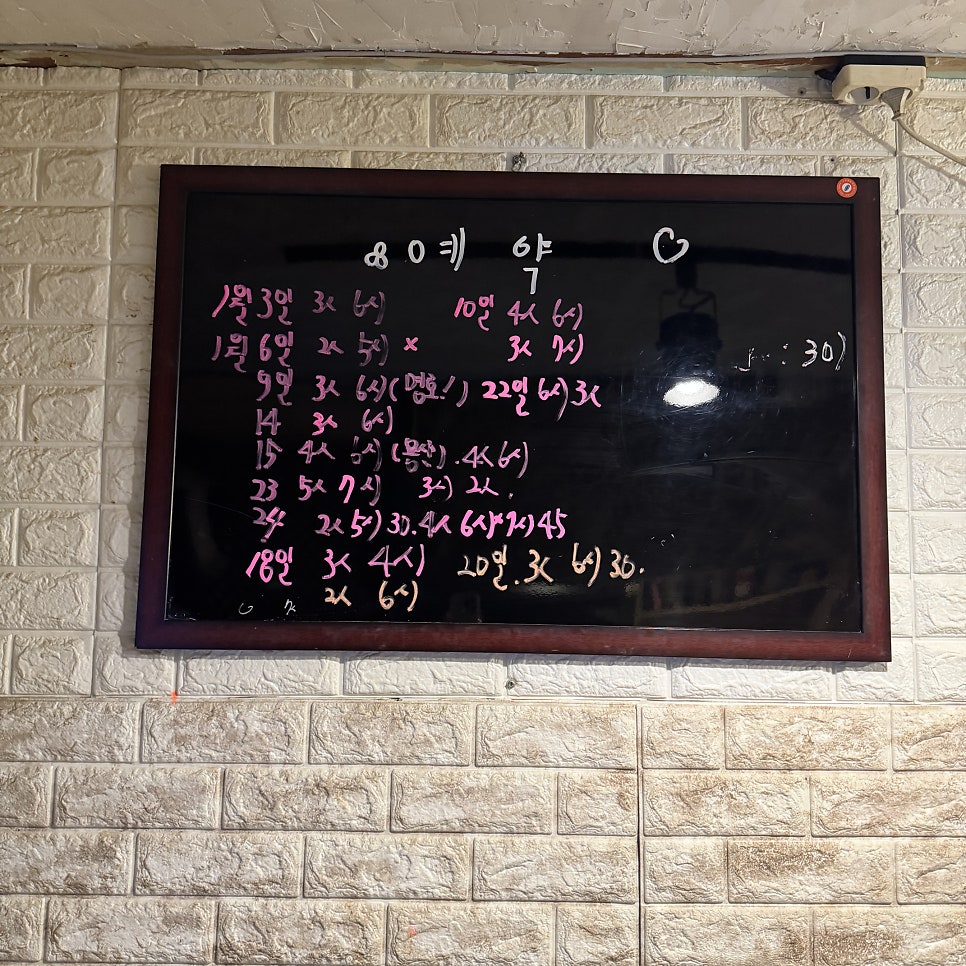 예약
1월 3일 3人 6시 10일 4人 6시
1월 6일 2人 5시 × 3人 7시
9일 3人 6시 (명호!) 22일 6시 3人
14 3人 6시
15 4人 6시 (용산). 4人 6시
23 5人 7시 3시 2人.
24 2人 5시 30. 4人 6시 45
18일 3人 4시 20일. 3人 6시 30.
2人 6시
: 30)